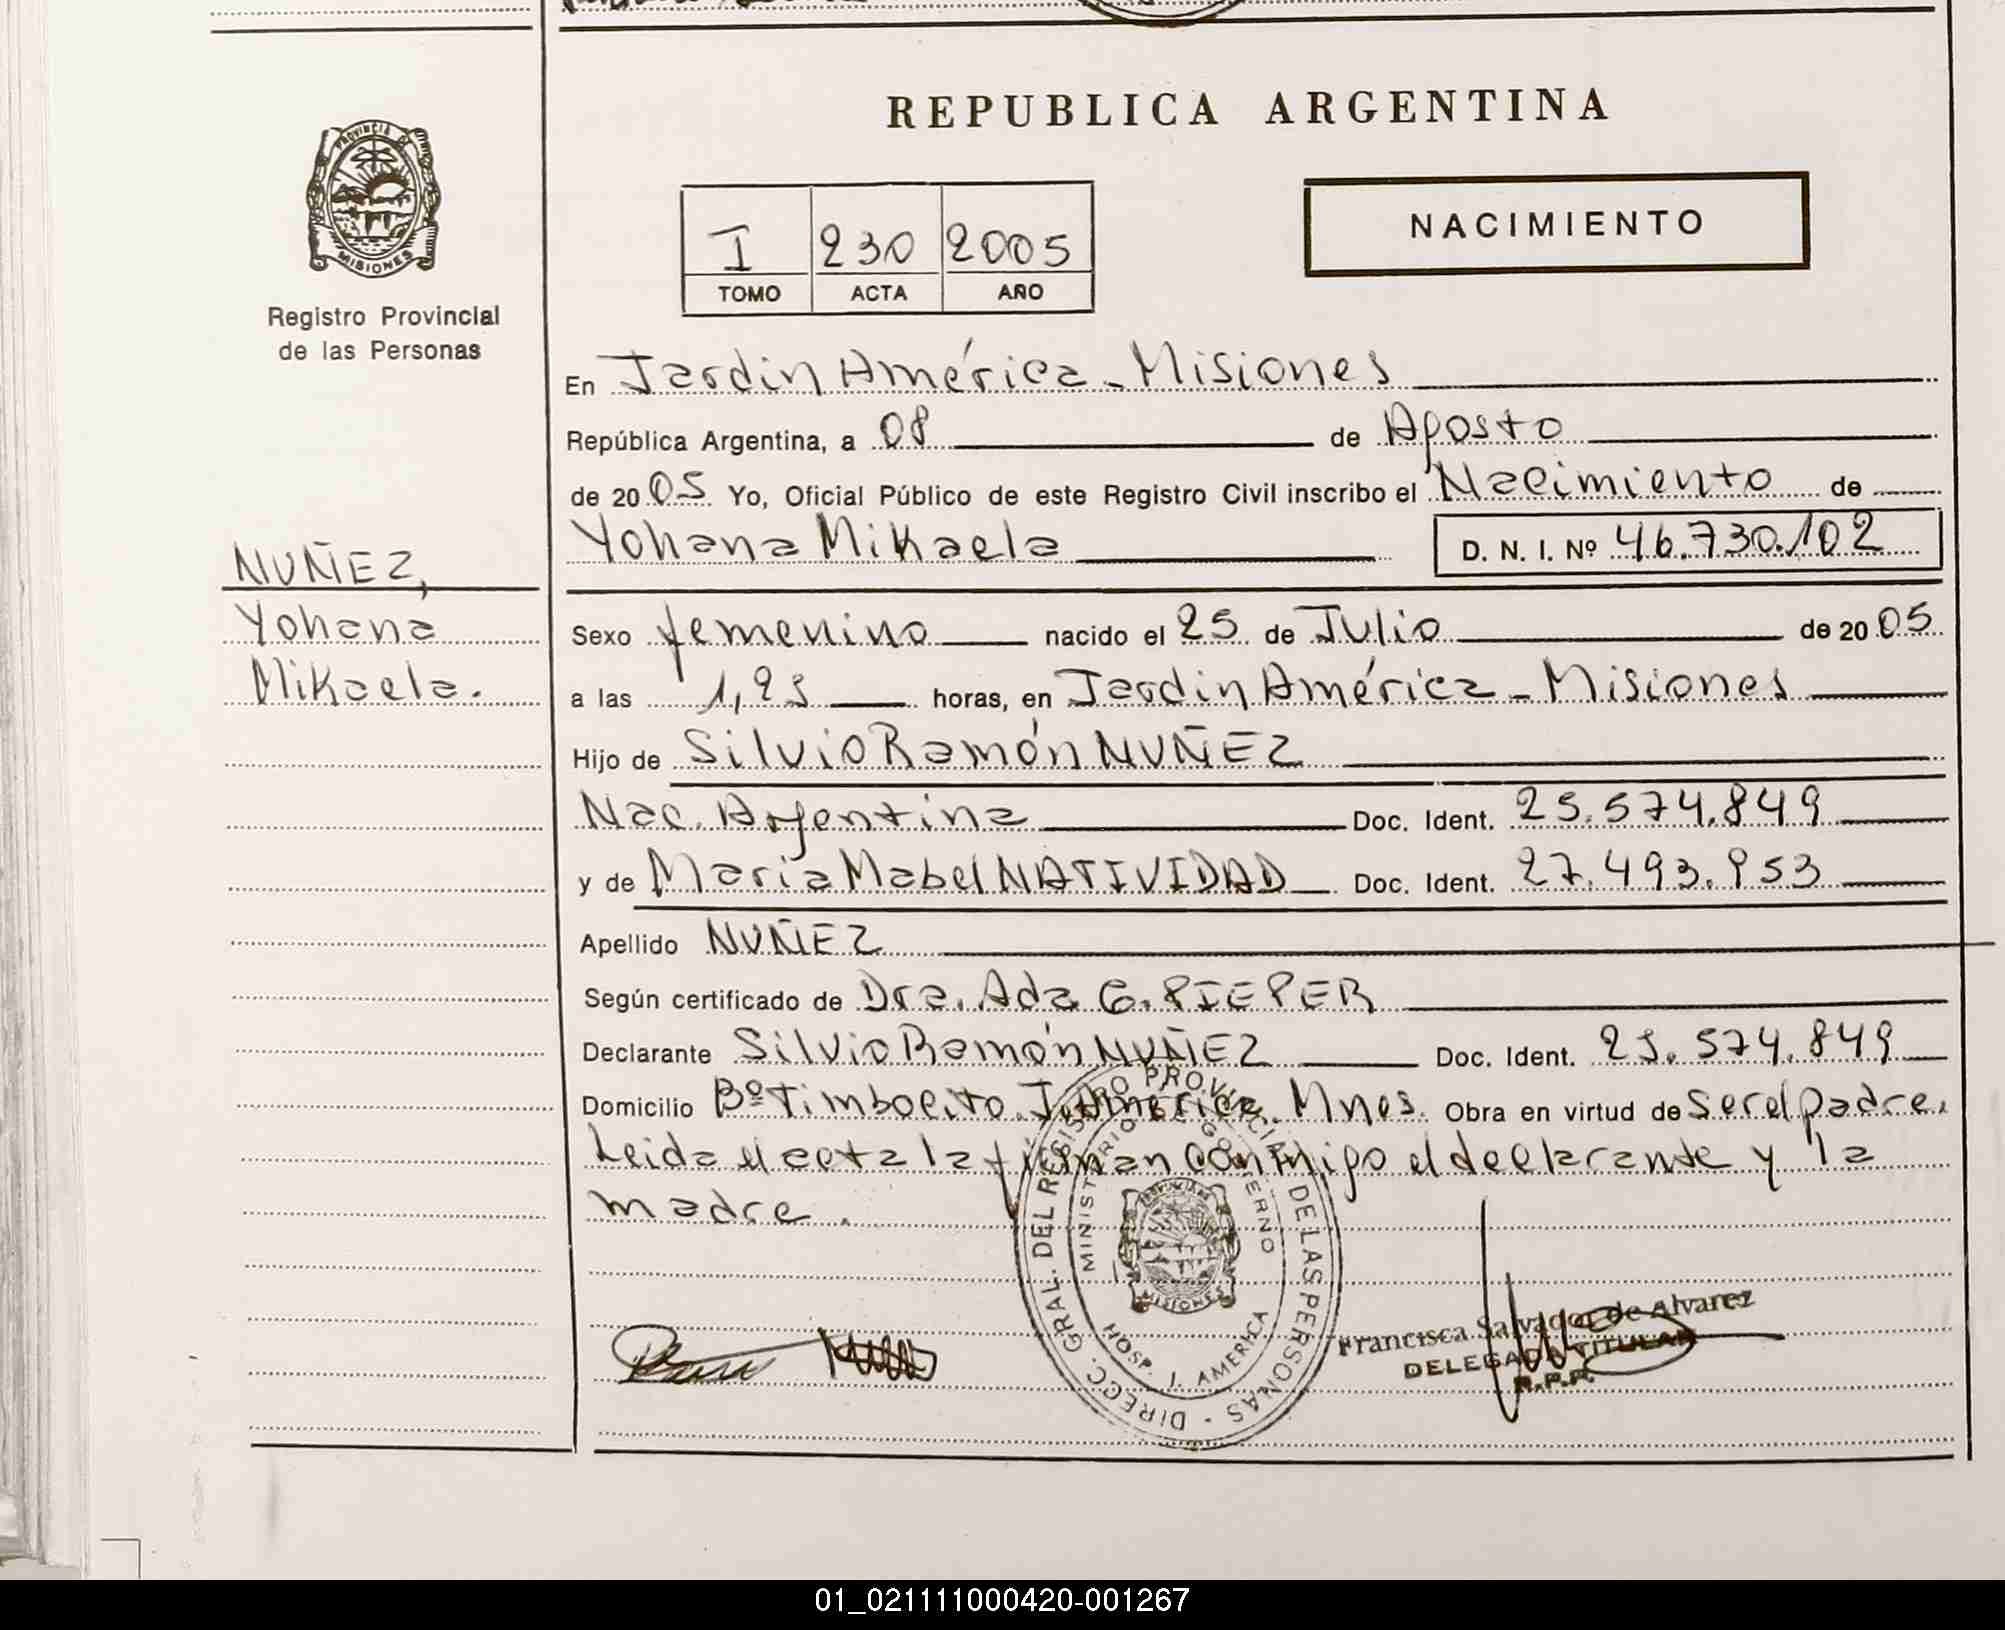 REPUBLICA ARGENTINA
PROVINCIA DE MISIONES
Registro Provincial
de las Personas
I 230 2005
TOMO ACTA AÑO
NACIMIENTO
En Jardín América - Misiones
República Argentina, a 08 de Agosto
de 2005 Yo, Oficial Público de este Registro Civil inscribo el Nacimiento de
Yohana Mikaela D. N. I. Nº 46.730.102
NUÑEZ,
Yohana
Mikaela.
Sexo femenino nacido el 25 de Julio de 2005
a las 1,25 horas, en Jardín América - Misiones
Hijo de Silvio Ramón NUÑEZ
Nac. Argentina Doc. Ident. 25.574.849
y de María Mabel NATIVIDAD Doc. Ident. 27.493.953
Apellido NUÑEZ
Según certificado de Dra. Ada G. PIEPER
Declarante Silvio Ramón NUÑEZ Doc. Ident. 25.574.849
Domicilio Bº Timbocito J. América. Mnes. Obra en virtud de Ser el padre.
Leida el acta la firman conmigo el declarante y la
madre.
DIRECC. GRAL. DEL REGISTRO PROVINCIAL DE LAS PERSONAS
MINISTERIO DE GOBIERNO
MISIONES
HOSP. J. AMERICA
Francisca Salvador de Alvarez
DELEGADA TITULAR
R.P.P.
01_021111000420-001267